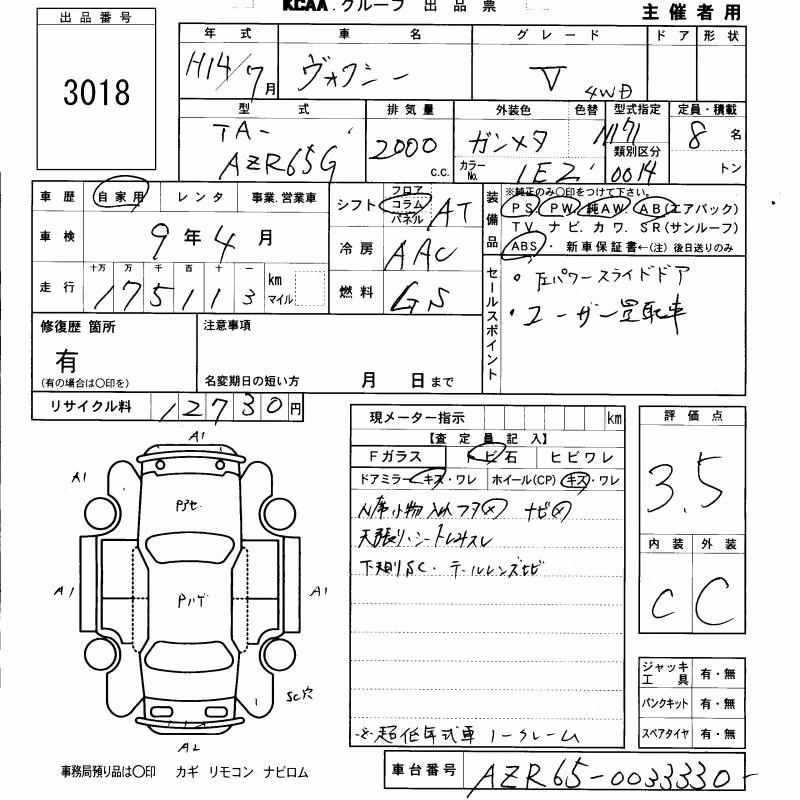 KCAA.グループ 出品票
主催者用
出品番号
3018
年式 車名 グレード ドア 形状
H14/7月 ヴォクシー V 4WD
型式 排気量 外装色 色替 型式指定 定員・積載
TA-
AZR65G 2000 c.c. ガンメタ N171 8名
カラーNo. 1E2 類別区分 0014 トン
車歴 自家用 レンタ 事業.営業車
車検 9年4月
走行 十万 万 千 百 十 一
175113 km マイル
シフト フロア コラム パネル AT
冷房 AAC
燃料 GS
装備品
※純正のみ○印をつけて下さい.
PS PW 純AW. AB(エアバック)
TV ナビ.カワ.SR(サンルーフ)
ABS・新車保証書←(注)後日送りのみ
セールスポイント
・左パワースライドドア
・ユーザー買取車
修復歴 箇所
有
(有の場合は○印を)
注意事項
名変期日の短い方 月 日まで
リサイクル料 12730円
現メーター指示 km
【査定員記入】
Fガラス トビ石 ヒビワレ
ドアミラー キズ・ワレ ホイール(CP) キズ・ワレ
小物入 フタ× ナビ×
天張り・シート
下廻りSC・テールレンズヒビ
※超低年式車 ノークレーム
評価点
3.5
内装 外装
C C
ジャッキ工具 有・無
パンクキット 有・無
スペアタイヤ 有・無
A1
A1
A1
A1
SC穴
A2
事務局預り品は○印 カギ リモコン ナビロム
車台番号 AZR65-0033330-